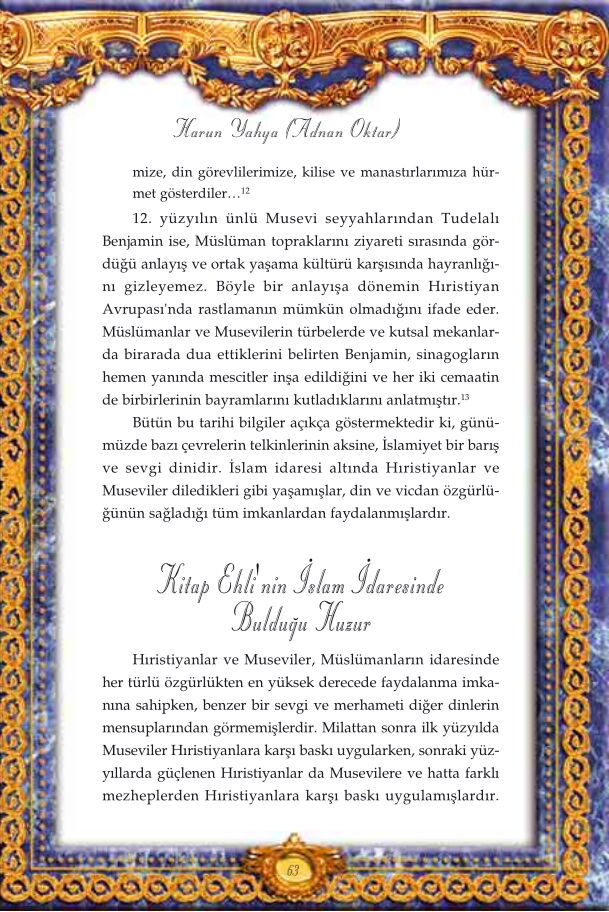 Harun Yahya (Adnan Oktar)
mize, din görevlilerimize, kilise ve manastırlarımıza hür-
met gösterdiler…12
12. yüzyılın ünlü Musevi seyyahlarından Tudelalı
Benjamin ise, Müslüman topraklarını ziyareti sırasında gör-
düğü anlayış ve ortak yaşama kültürü karşısında hayranlığı-
nı gizleyemez. Böyle bir anlayışa dönemin Hıristiyan
Avrupası'nda rastlamanın mümkün olmadığını ifade eder.
Müslümanlar ve Musevilerin türbelerde ve kutsal mekanlar-
da birarada dua ettiklerini belirten Benjamin, sinagogların
hemen yanında mescitler inşa edildiğini ve her iki cemaatin
de birbirlerinin bayramlarını kutladıklarını anlatmıştır.13
Bütün bu tarihi bilgiler açıkça göstermektedir ki, günü-
müzde bazı çevrelerin telkinlerinin aksine, İslamiyet bir barış
ve sevgi dinidir. İslam idaresi altında Hıristiyanlar ve
Museviler diledikleri gibi yaşamışlar, din ve vicdan özgürlü-
ğünün sağladığı tüm imkanlardan faydalanmışlardır.
Kitap Ehli'nin İslam İdaresinde
Bulduğu Huzur
Hıristiyanlar ve Museviler, Müslümanların idaresinde
her türlü özgürlükten en yüksek derecede faydalanma imka-
nına sahipken, benzer bir sevgi ve merhameti diğer dinlerin
mensuplarından görmemişlerdir. Milattan sonra ilk yüzyılda
Museviler Hıristiyanlara karşı baskı uygularken, sonraki yüz-
yıllarda güçlenen Hıristiyanlar da Musevilere ve hatta farklı
mezheplerden Hıristiyanlara karşı baskı uygulamışlardır.
63